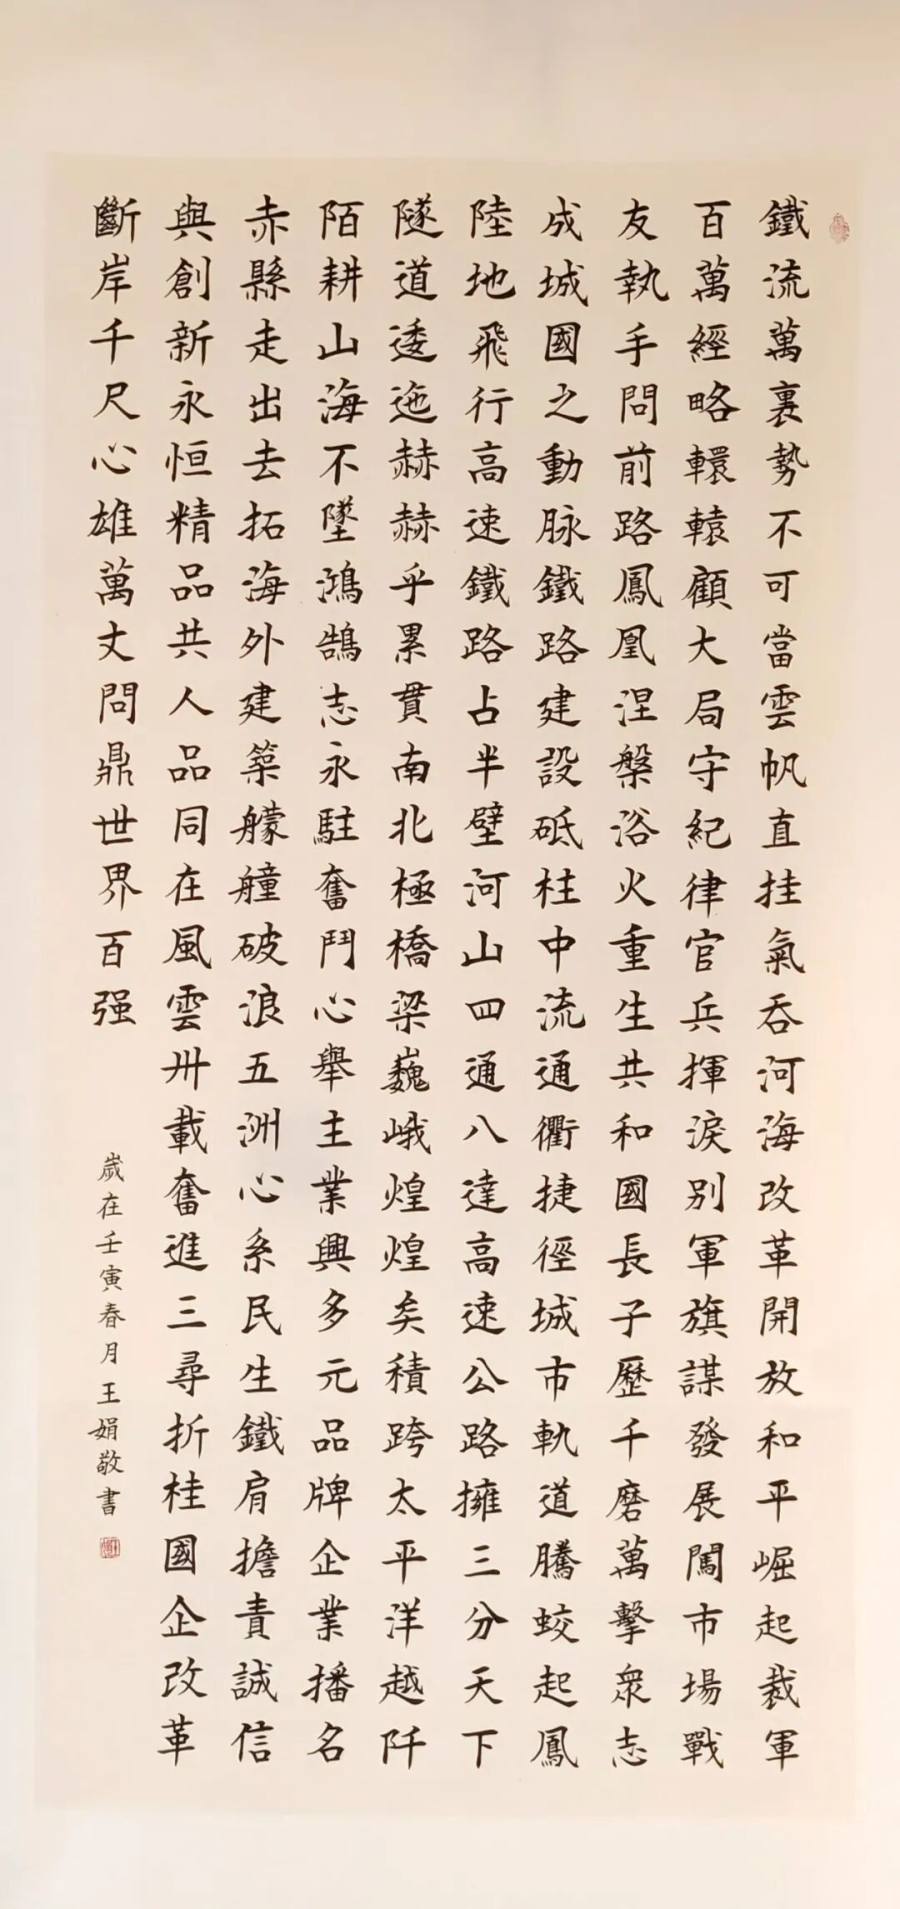 鐵流萬裏勢不可當雲帆直挂氣吞河海改革開放和平崛起裁軍
百萬經略轘轅顧大局守紀律官兵揮淚別軍旗謀發展闖市場戰
友執手問前路鳳凰涅槃浴火重生共和國長子歷千磨萬擊衆志
成城國之動脉鐵路建設砥柱中流通衢捷徑城市軌道騰蛟起鳳
陸地飛行高速鐵路占半壁河山四通八達高速公路擁三分天下
隧道逶迤赫赫乎累貫南北極橋梁巍峨煌煌矣積跨太平洋越阡
陌耕山海不墜鴻鵠志永駐奮鬥心舉主業興多元品牌企業播名
赤縣走出去拓海外建築艨艟破浪五洲心系民生鐵肩擔責誠信
與創新永恒精品共人品同在風雲卅載奮進三尋折桂國企改革
斷岸千尺心雄萬丈問鼎世界百强
歲在壬寅春月王娟敬書